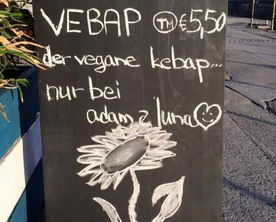 VEBAP ™ €5,50
der vegane kebap...
nur bei
adam & luna